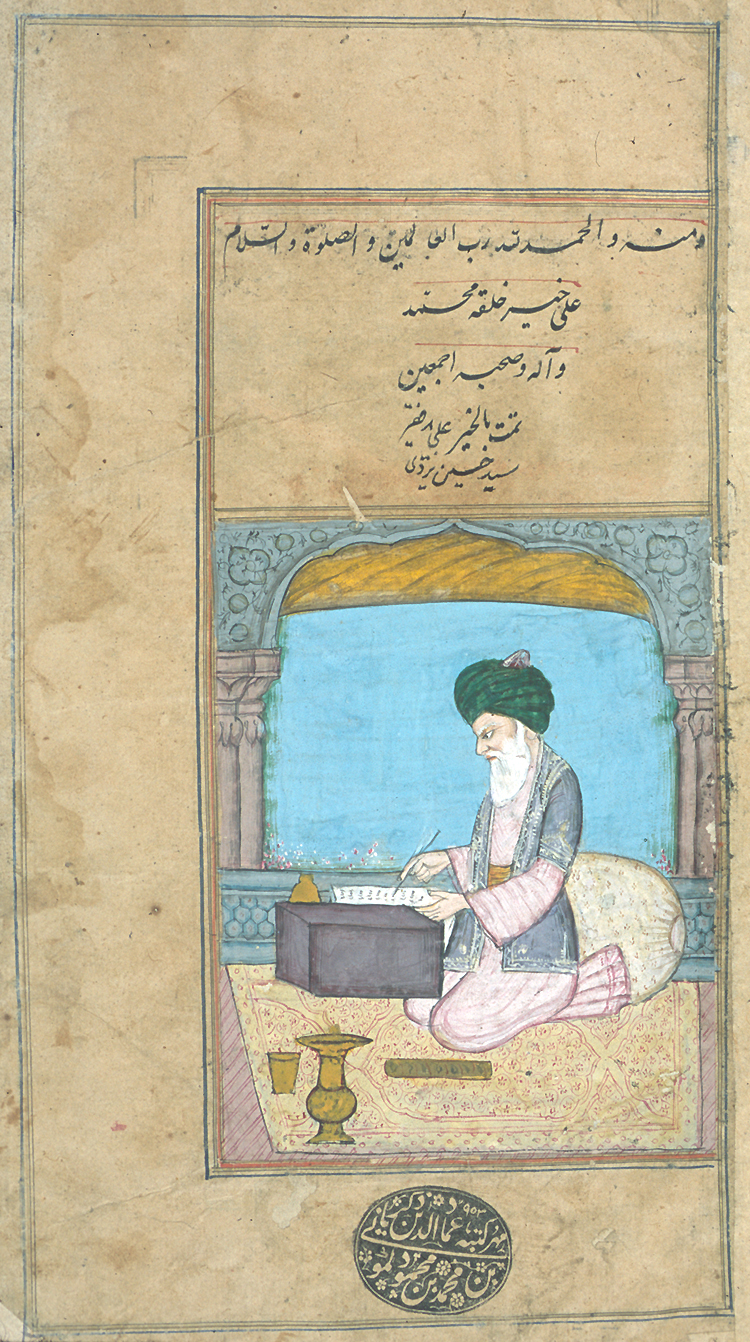 ومنه و الحمد لله رب العالمین و الصلوة و السلام
علی خیر خلقه محمد
و آله و صحبه اجمعین
تمت بالخیر علی ید فقیر
سید حسین یزدی
۹۵۳
مهر کتبه عمادالدین
بن محمد بن محمود